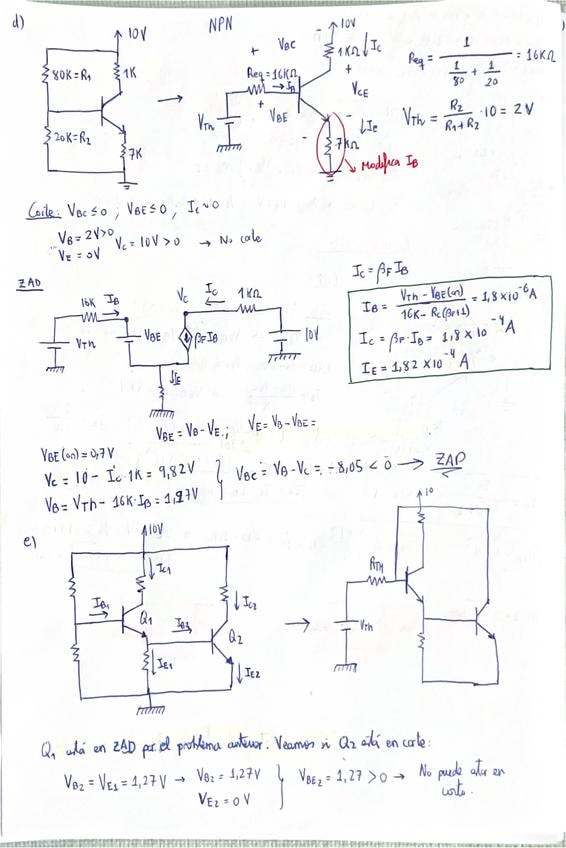 d)
NPN
10V
80K=R1
1K
20K=R2
7K
10V
+ VBC -
1KΩ
IC
Req=16KΩ
IB
+
VCE
-
VTh
+ VBE -
IE
7KΩ
Modifica IB
Req = 1 / (1/80 + 1/20) = 16KΩ
VTh = R2/(R1+R2) · 10 = 2V
Corte: VBC ≤ 0 ; VBE ≤ 0 , IC ≈ 0
VB = 2V>0
VE = 0V
VC = 10V > 0 → No corte
ZAD
16K
IB
VC
IC
1KΩ
VTh
VBE
βFIB
10V
IE
IC = βF IB
IB = (VTh - VBE(on)) / (16K - RC(βF+1)) = 1,8×10⁻⁶A
IC = βF·IB = 1,8×10⁻⁴A
IE = 1,82×10⁻⁴ A
VBE = VB - VE ; VE = VB - VBE =
VBE(on) = 0,7V
VC = 10 - IC·1K = 9,82V
VB = VTh - 16K·IB = 1,97V
VBC = VB - VC = -8,05 < 0 → ZAD
e)
10V
IC1
IB1
Q1
IB2
IC2
Q2
IE1
IE2
10
RTh
VTh
Q1 está en ZAD por el problema anterior. Veamos si Q2 está en corte:
VB2 = VE1 = 1,27V → VB2 = 1,27V
VE2 = 0V
VBE2 = 1,27 > 0 → No puede estar en
corte.